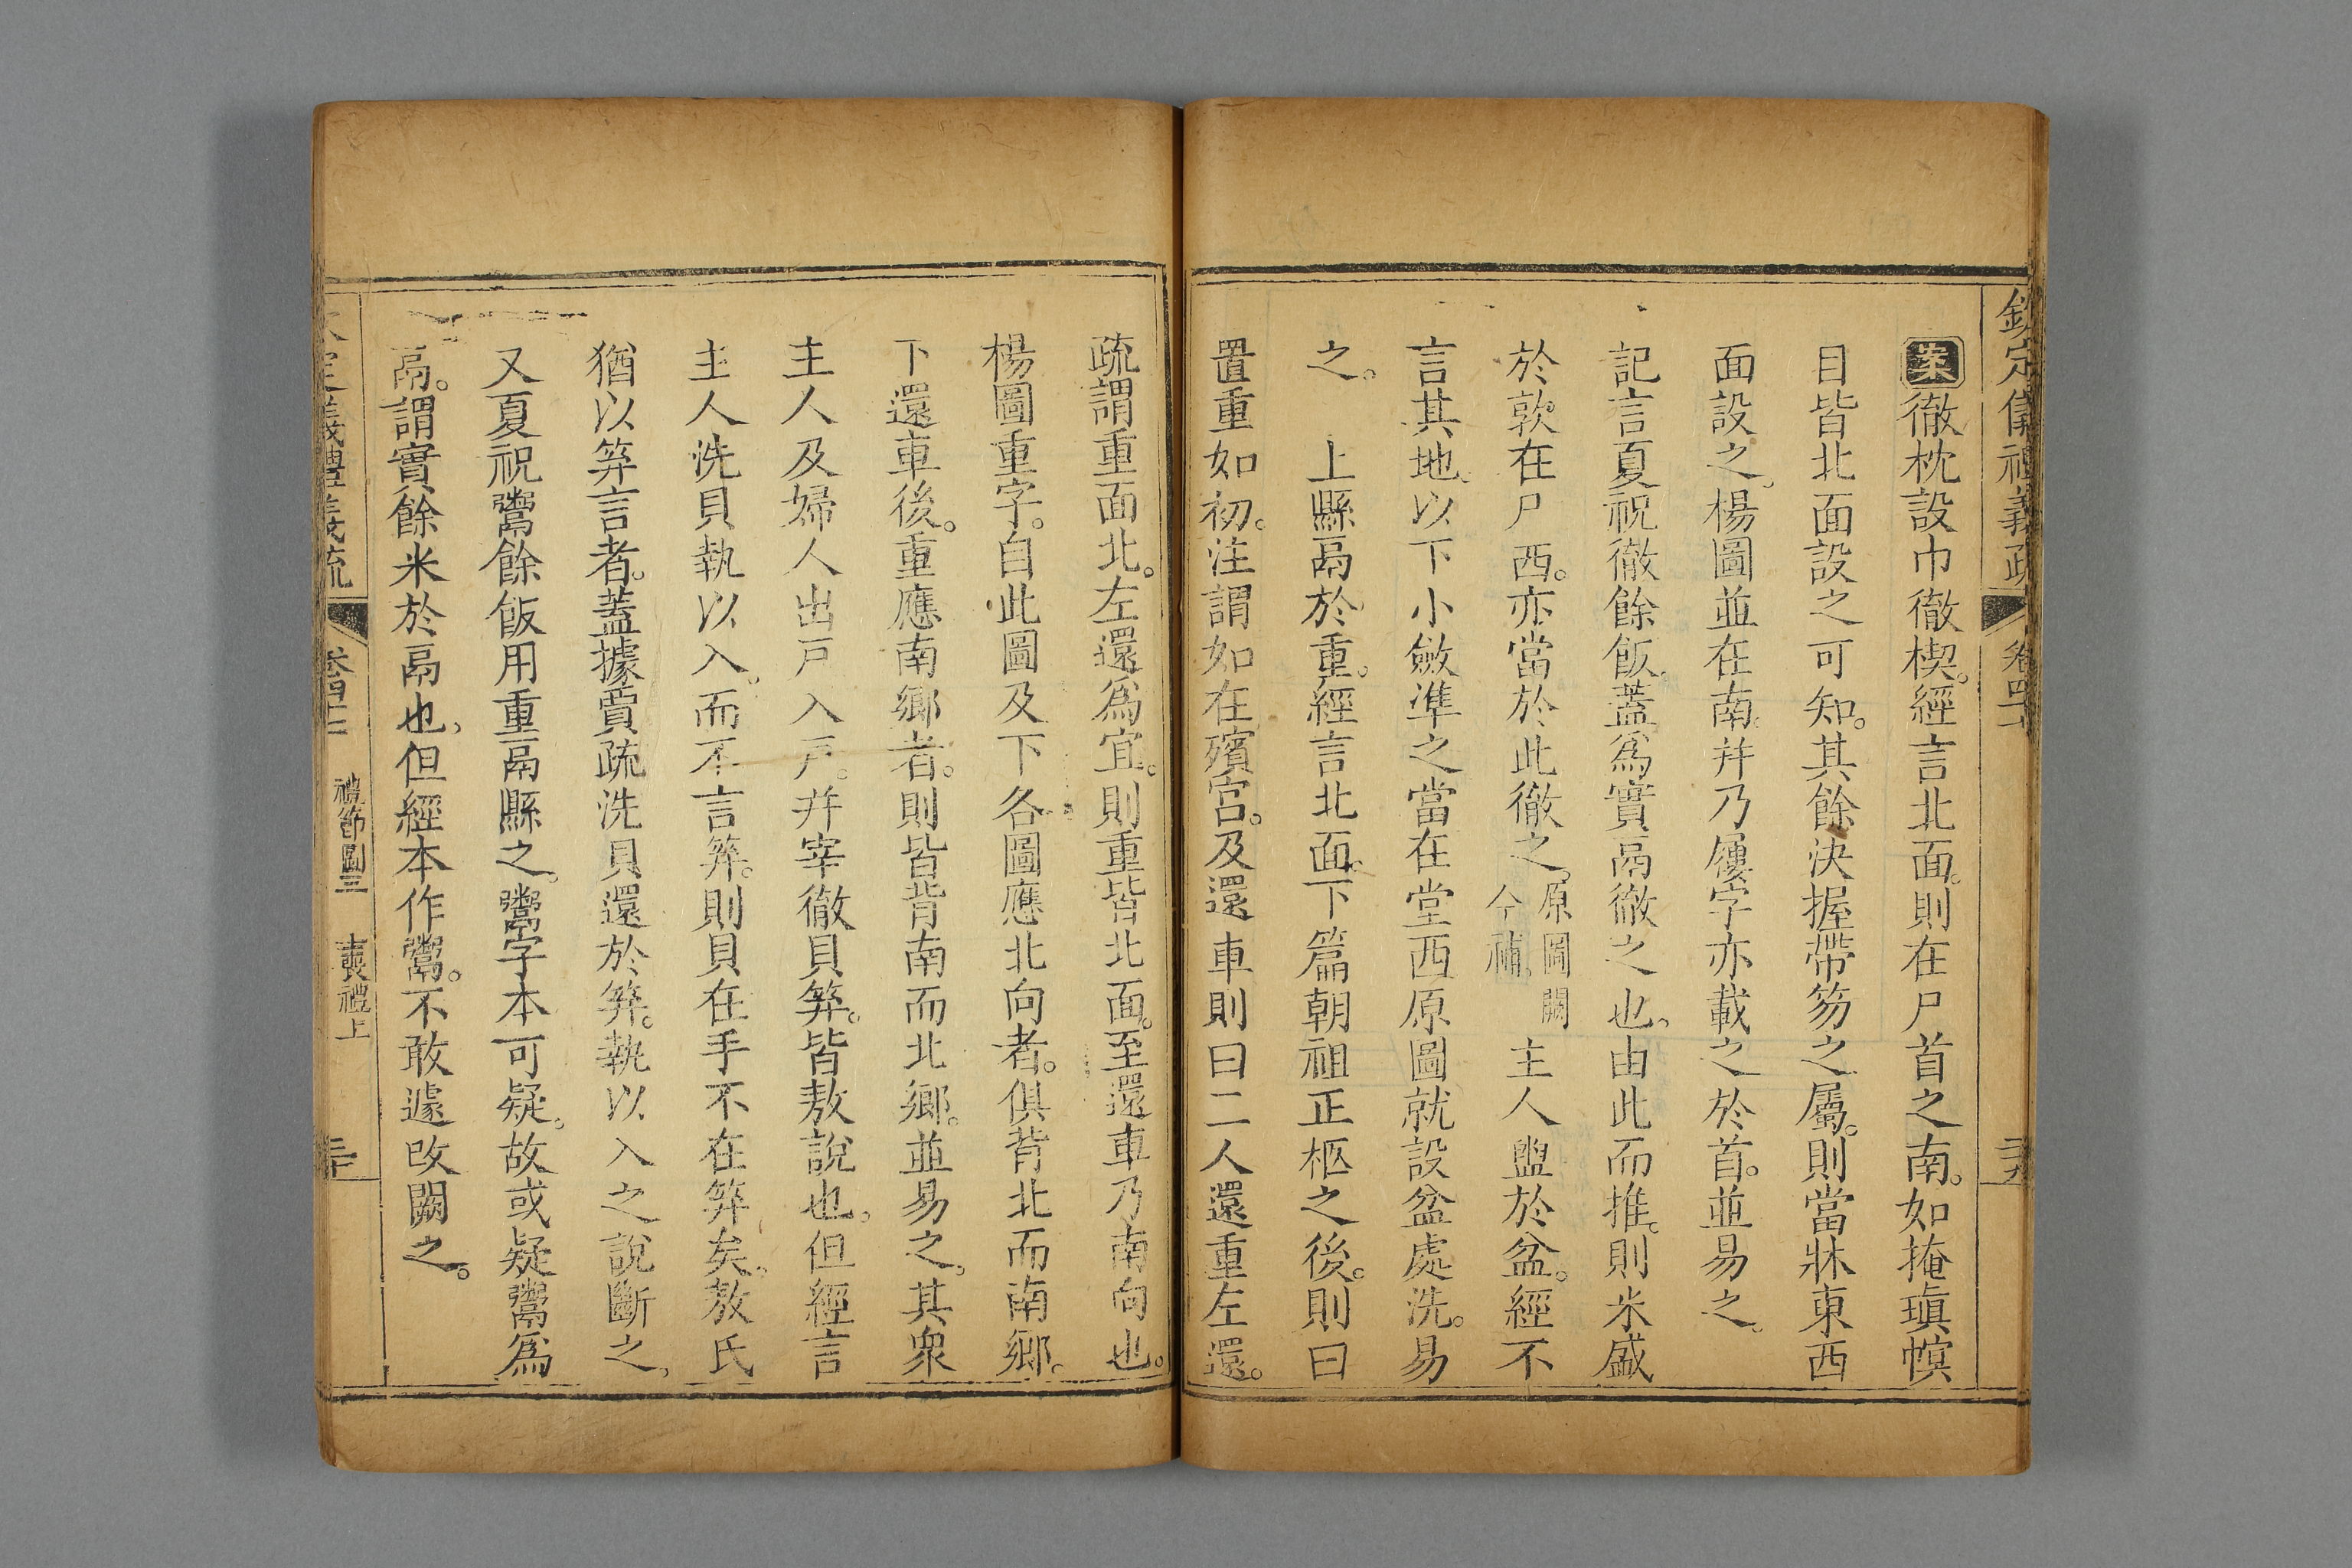 欽定儀禮義疏 卷四十 二十九
案徹枕設巾徹楔。經言北面。則在尸首之南。如掩瑱幎
目皆北面設之可知。其餘決握帶笏之屬。則當牀東西
面設之。楊圖並在南。并乃屨字亦載之於首。並易之。
記言夏祝徹餘飯。蓋爲實鬲徹之也。由此而推。則米盛
於敦在尸西。亦當於此徹之。原圖闕今補。 主人盥於盆。經不
言其地。以下小斂準之當在堂西原圖就設盆處洗。易
之。 上縣鬲於重。經言北面。下篇朝祖正柩之後。則曰
置重如初。注謂如在殯宮。及還車則曰二人還重左還。
疏謂重面北。左還爲宜。則重皆北面。至還車乃南向也。
楊圖重字。自此圖及下各圖應北向者。俱背北而南鄉。
下還車後。重應南鄉者。則皆背南而北鄉。並易之。其衆
主人及婦人出戸入戸。并宰徹貝笲。皆敖說也。但經言
主人洗貝執以入。而不言笲。則貝在手不在笲矣。敖氏
猶以笲言者。蓋據賈疏洗貝還於笲。執以入之說斷之。
又夏祝鬻餘飯用重鬲縣之。鬻字本可疑。故或疑鬻爲
鬲。謂實餘米於鬲也。但經本作鬻。不敢遽改闕之。
定義禮義疏 卷四十二 禮節圖三 喪禮上 三十